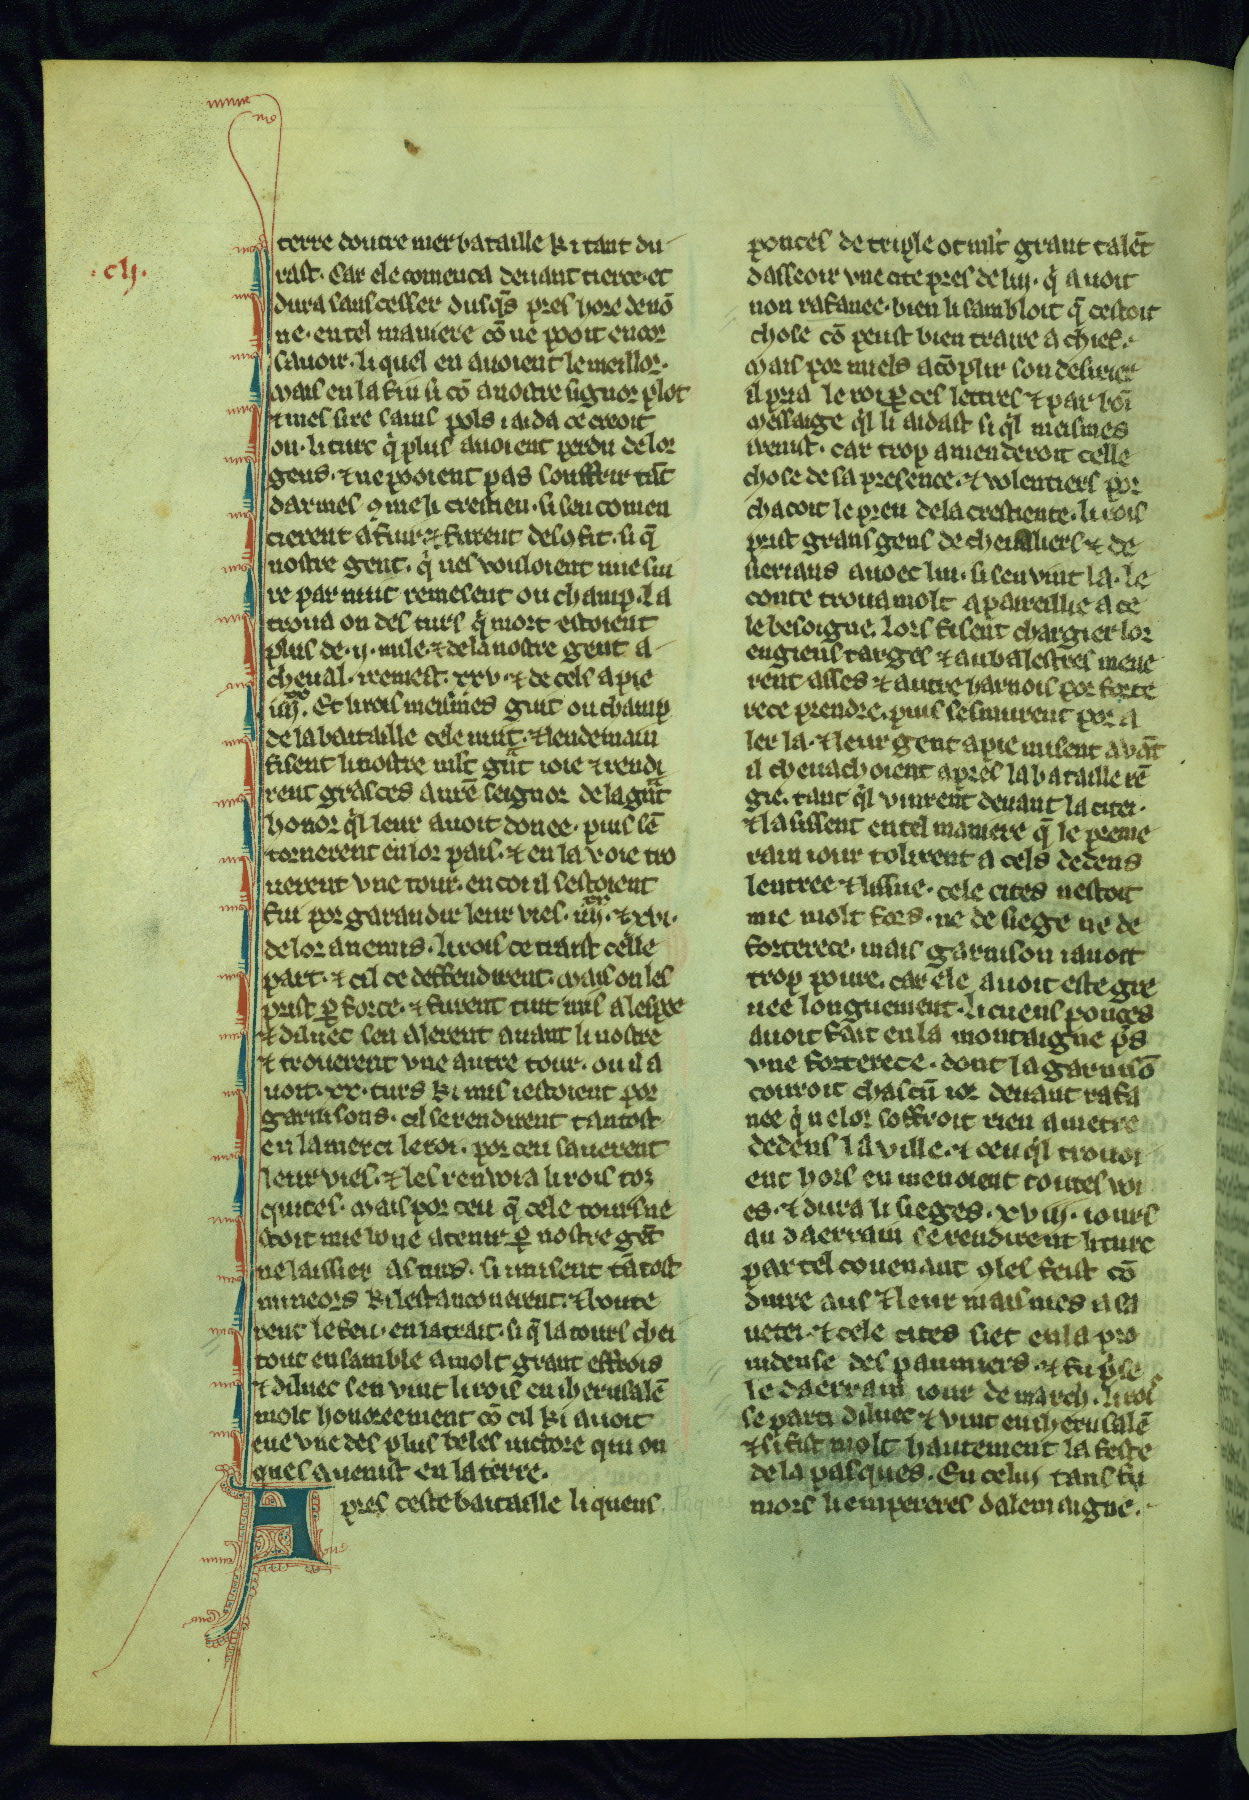 .clj.
terre doutre mer bataille ki tant du
rast. Car ele comenca deuant tierce. et
dura sans cesser dusqs pres hore de nō
ne. en tel maniere cō ne pooit encor
sauoir. li quel en auoient le meillor.
Mais en la fin si cō a nostre signor plot
⁊ mes sire sains pols i aida ce croit
on. li turc q̇ plus auoient perdu de lor
gens. ⁊ ne pooient pas souffrir tāt
darmes ꝯme li crestien. si sen comen
cierent a fuir ⁊ furent desꝯfit. si q̄
nostre gent. q̇ nes vouloient mie siu
re par nuit remesent ou champ. La
troua on des turs q̇ mort estoient
plus de .ij. mile. ⁊ de la nostre gent a
cheual. remest .xxv. ⁊ de cels a pie
iiij. Et li rois meismes giut ou champ
de la bataille cele nuit. ⁊ lendemain
fisent li nostre mlt gnt ioie ⁊ rendi
rent grasces a nrē seignor de la gnt
honor ql leur auoit donee. puis sē
tornerent en lor pais. ⁊ en la voie tro
uerent vne tour. en coi il sestoient
fui por garandir leur vies. iiij. ⁊ xvi.
de lor anemis. li rois ce traist celle
part. ⁊ cil ce deffendirent. Mais on les
prist ꝑ force. ⁊ furent tuit mis a lespee
⁊ diluec sen alerent auant li nostre
⁊ trouerent vne autre tour. ou il a
uoit .xx. turs ki mis i estoient por
garnisons. cil se rendirent tantost
en la merci le roi. por ceu sauerent
leur vies. ⁊ les renvoia li rois toz
quites. Mais por ceu q̄ cele tours ne
stoit mie boine a tenir ꝑ nostre gēt
ne laissier as turs. si i misent tātost
mineors ki lestanconerent. ⁊ boute
rent le feu. en la trait. si q̄ la tours chei
tout ensamble a molt grant effrois
⁊ diluec sen vint li rois en iherusalē
molt honoreement cō cil ki auoit
eue vne des plus beles uictore qui on
ques auenist en la terre.
A pres ceste bataille li quens
ponces de triple ot mlt grant talēt
dasseoir vne cite pres de lui. q̇ auoit
non rafanee. bien li sambloit q̄ cestoit
chose cō peust bien traire a chief.
Mais por miels acōplir son desirier
il pria le roi ꝑ ces lettres ⁊ par bōi
Messaige ql li aidast si ql meismes
i venist. car trop amenderoit celle
chose de sa presence. ⁊ volentiers por
chacoit le preu de la crestiente. li rois
prist grans gens de cheualiers ⁊ de
serians auoec lui. si sen vint la. Le
conte troua molt apareillie a ce
le besoigne. Lors fisent chargier lor
engiens targes ⁊ aubalestres mene
rent asses ⁊ autre harnois por forte
rece prendre. puis se smurent por a
ler la. ⁊ leur gent a pie misent auāt
il cheuachoient apres la bataille rē
gie. tant ql vinrent deuant la citei.
⁊ lasissent en tel maniere q̄ le preme
rain iour tolirent a cels dedens
lentree ⁊ lissue. cele cites nestoit
mie molt fors. ne de siege ne de
forterece. mais garnison i auoit
trop poure. car ele auoit este gre
uee longuement. li cuens ponces
auoit fait en la montaigne ps
vne forterece. dont la garnisō
couroit chascū ior deuant rafa
nee q̇ ne lor soffroit rien a metre
dedens la ville. ⁊ ceu ql trouoi
ent hors en menoient toutes voi
es. ⁊ dura li sieges .xviij. iours
au daerrain se rendirent li turc
par tel couenant ꝯ les feist cō
duire aus ⁊ leur maismes a sa
uetei. ⁊ cele cites siet en la pro
uidense des paumiers. ⁊ fu pse
le daerrain iour de march. li rois
se parti diluec ⁊ vint en iherusalē
⁊ si fist molt hautement la feste
de la pasques. En celui tans fu
mors li empereres dalemaigne.